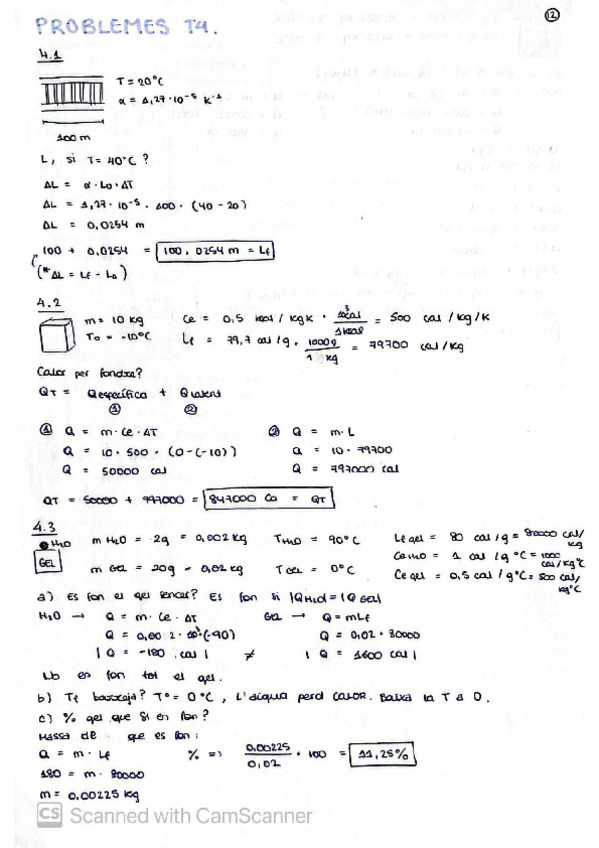 12
PROBLEMES T4.
4.1
T = 20°C
α = 1,27·10⁻⁵ K⁻¹
100 m
L, si T = 40°C ?
ΔL = α·L₀·ΔT
ΔL = 1,27·10⁻⁵ · 100 · (40 - 20)
ΔL = 0,0254 m
100 + 0,0254 = 100,0254 m = Lf
(*ΔL = Lf - L₀)
4.2
m = 10 kg
T₀ = -10°C
Ce = 0,5 kcal / kgK · 10³cal / 1kcal = 500 cal / kg/K
Lf = 79,7 cal / g · 1000g / 1 kg = 79700 cal / kg
Calor per fondre?
QT = Qespecífica + Qlatent
① ②
① Q = m·Ce·ΔT
Q = 10·500·(0-(-10))
Q = 50000 cal
② Q = m·L
Q = 10·79700
Q = 797000 cal
QT = 50000 + 797000 = 847000 Ca = QT
4.3
H₂O
GEL
m H₂O = 2g = 0,002 kg
T H₂O = 90°C
m GEL = 20g - 0,02 kg
T GEL = 0°C
Le gel = 80 cal / g = 80000 cal/kg
Ce H₂O = 1 cal / g °C = 1000 cal/kg°C
Ce gel = 0,5 cal / g°C = 500 cal/kg°C
a) Es fon el gel sencer? Es fon si |Q H₂O| = |Q GEL|
H₂O → Q = m·Ce·ΔT
Q = 0,002·10³(-90)
|Q = -180 cal| ≠
GEL → Q = mLf
Q = 0,02·80000
|Q = 1600 cal|
No es fon tot el gel.
b) Tf barreja? T° = 0°C, L'aigua perd CALOR. Baixa la T a 0.
c) % gel que si es fon?
Massa de que es fon:
Q = m·Lf
180 = m·80000
m = 0,00225 kg
% => 0,00225 / 0,02 · 100 = 11,25%
CS Scanned with CamScanner